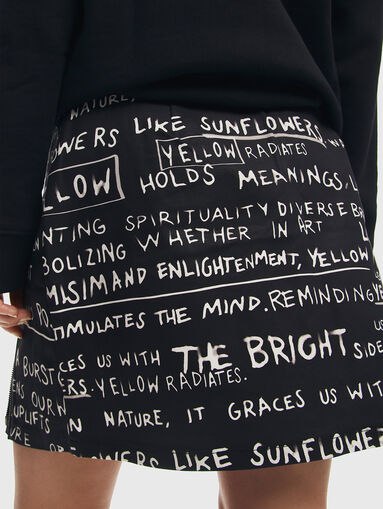 NATURE,
OWERS LIKE SUNFLOWERS,
YELLOW RADIATES
LLOW HOLDS MEANINGS,
NTING SPIRITUALITY DIVERSE
BOLIZING WHETHER IN ART
MISIM AND ENLIGHTENMENT, YELLOW
TIMULATES THE MIND. REMINDING
A BURST CES US WITH THE BRIGHT SIDE
ENS OUR ERS. YELLOW RADIATES.
UPLIFTS IN NATURE, IT GRACES US WIT
URE OR OWERS LIKE SUNFLOWER